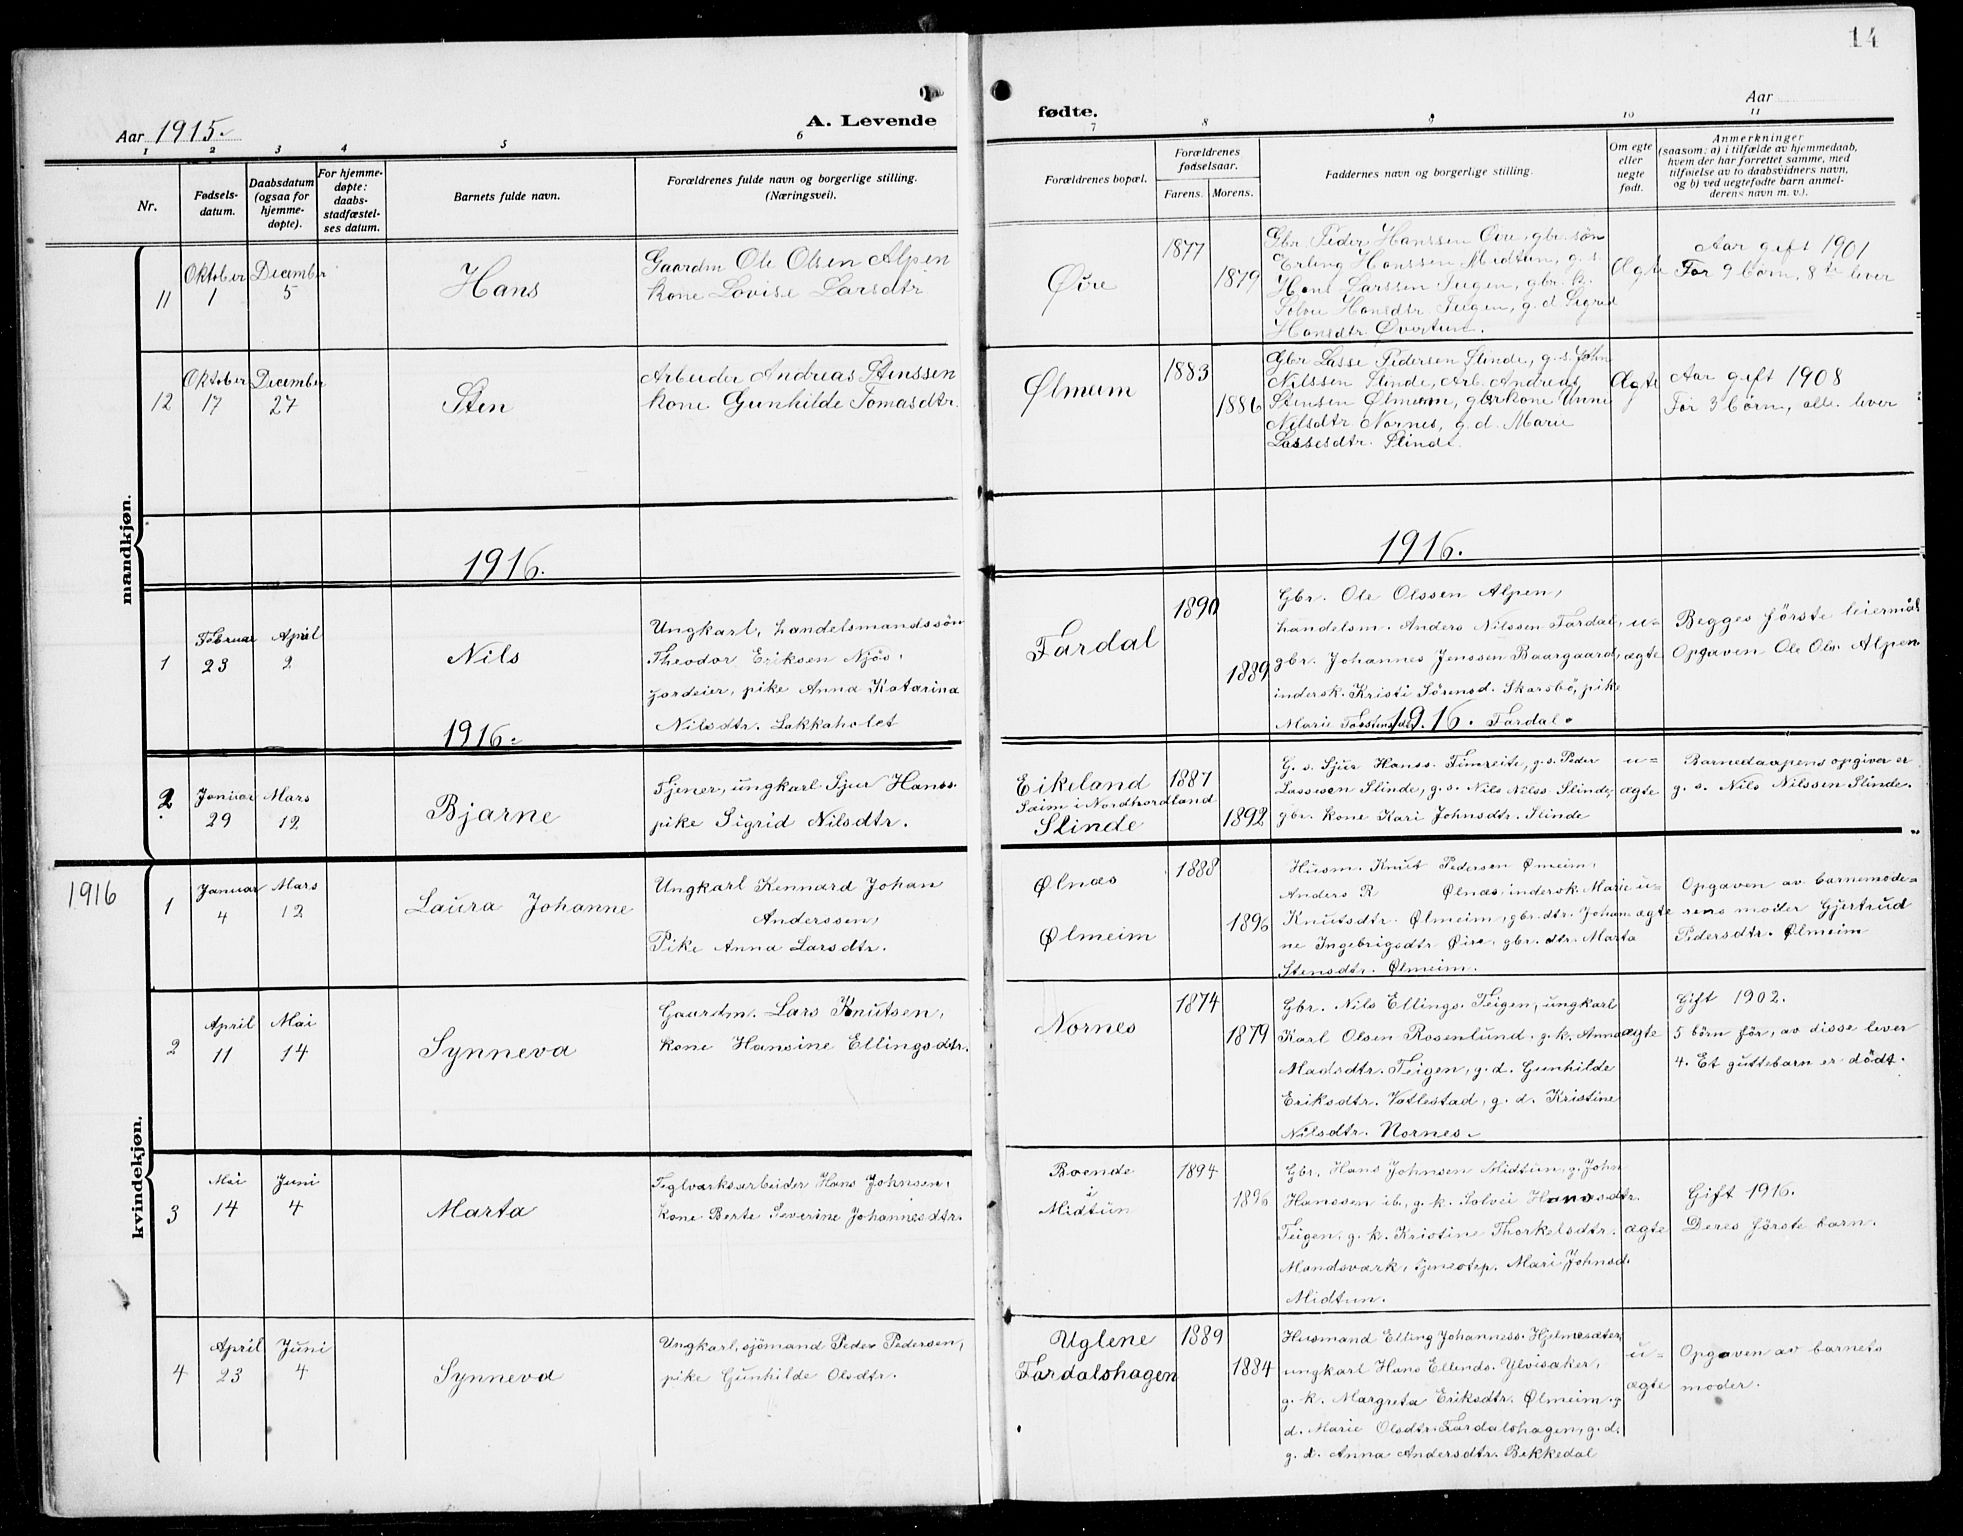 14
Aar 1915.
A. Levende
fødte.
Aar
1 2 3 4 5 6 7 8 9 10 11
Nr.
Fødsels-
datum.
Daabsdatum
(ogsaa for
hjemme-
døpte).
For hjemme-
døpte:
daabs-
stadfæstel-
ses datum.
Barnets fulde navn.
Forældrenes fulde navn og borgerlige stilling.
(Næringsvei).
Forældrenes bopæl.
Forældrenes
fødselsaar.
Farens. Morens.
Faddernes navn og borgerlige stilling.
Om egte
eller
uegte
født.
Anmerkninger
(saasom: a) i tilfælde av hjemmedaab,
hvem der har forrettet samme, med
tilføielse av to daabsvidners navn,
og b) ved uegtefødte barn anmel-
derens navn m. v.).
mandkjøn.
11
Oktober
1
December
5
Hans
Gaardm Ole Olsen Alpen
kone Lovise Larsdtr
Øvre
1877
1879
Gbr. Peder Hanssen Øvre, gbr. søn
Erling Hanssen Midtun, g. s.
Hans Larssen Teigen, gbr. k.
Solvei Hansdtr. Teigen, g. d. Sigrid
Hansdtr. Øvertun.
Ægte
Aar gift 1901
Før 9 børn, 8te lever
12
Oktober
17
December
27
Sten
Arbeider Andreas Stenssen
kone Gunhilde Tomasdtr.
Ølmum
1883
1886
Gbr Lasse Pedersen Slinde, g. s. John
Nilssen Slinde, Arb. Andreas
Stensen Ølmum, gbrkone Unne
Nilsdtr Nornes, g. d. Marie
Lassesdtr. Slinde.
Ægte
Aar gift 1908
Før 3 børn, alle lever
1916.
1916.
1
Februar
23
April
2
Nils
Ungkarl, handelsmandssøn
Theodor Eriksen Njøs.
jordeier, pike Anna Katarina
Nilsdtr. Lakkaholet
Fardal
1890
1889
Gbr. Ole Olssen Alpen,
handelsm. Anders Nilssen Fardal,
gbr. Johannes Jenssen Baargaard,
indersk. Kristi Sørensd. Skarsbø, pike
Marie Torstensdtr. Fardal.
u-
ægte
Begges første leiermål
Opgaven Ole Ols. Alpen
1916.
1916.
2
Januar
29
Mars
12
Bjarne
Tjener, ungkarl Sjur Hanss.
pike Sigrid Nilsdtr.
Eikeland
Sæim i Nordhordland
Slinde
1887
1892
G. s. Sjur Hanss. Timreite, g. s. Peder
Lassesen Slinde, g. s. Nils Nilss. Slinde,
gbr. kone Kari Johnsdtr. Slinde
u-
ægte
Barnedaapens opgiver er
g. s. Nils Nilssen Slinde.
1916
kvindekjøn.
1
Januar
4
Mars
12
Laura Johanne
Ungkarl Kennard Johan
Anderssen,
Pike Anna Larsdtr.
Ølnæs
Ølmeim
1888
1896
Husm. Knut Pedersen Ølmeim,
Anders R Ølnæs, indersk. Marie
Knutsdtr. Ølmeim, gbr. dtr. Johan-
ne Ingebrigsdtr Øire, gbr. dtr. Marta
Stensdtr. Ølmeim.
u-
ægte
Opgaven av barnemode-
rens moder Gjertrud
Pedersdtr. Ølmeim
2
April
11
Mai
14
Synneva
Gaardm. Lars Knutsen,
kone Hansine Ellingsdtr.
Nornes
1874
1879
Gbr. Nils Ellings. Teigen, ungkarl
Karl Olsen Rosenlund, g. k. Anna
Madsdtr. Teigen, g. d. Gunhilde
Eriksdtr. Vatlestad, g. d. Kristine
Nilsdtr. Nornes.
ægte
Gift 1902.
5 børn før, av disse lever
4. Et guttebarn er dödt.
3
Mai
14
Juni
4
Marta
Teglværksarbeider Hans Johnsen,
kone Berte Severine Johannesdtr.
Boende
i
Midtün
1894
1896
Gbr. Hans Johnsen Midtun, g. John
Hanssen ib., g. k. Solvei Hansdtr.
Teigen, g. k. Kristine Thorkelsdtr.
Mandsværk, tjenestep. Mari Johnsd.
Midtun.
ægte
Gift 1916.
Deres første barn.
4
April
23
Juni
4
Synneva
Ungkarl, sjömand Peder Pedersen,
pike Gunhilde Olsdtr.
Uglene
Fardalshagen
1889
1884
Husmand Elling Johanness. Hjelmesæter,
ungkarl Hans Ellends. Ylvisaker,
g. k. Margreta Eriksdtr. Ølmeim, g.
d. Marie Olsdtr. Fardalshagen, g. d.
g. d. Anna Andersdtr. Bekkedal
u-
ægte
Opgaven av barnets
moder.